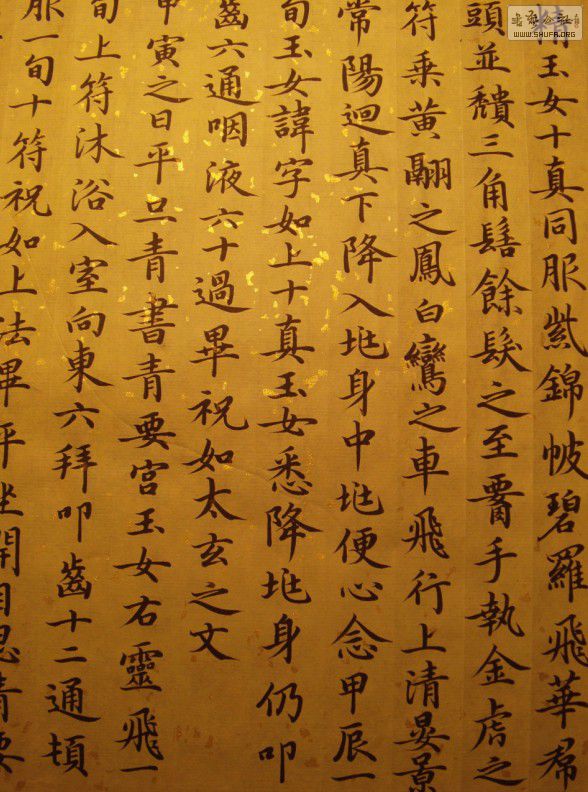 精玉女十真同服紫錦帔碧羅飛華帬
頭並頹三角髻餘髮之至腰手執金虎之
符乘黃翮之鳳白鸞之車飛行上清晏景
常陽迴真下降入某身中某便心念甲辰一
旬玉女諱字如上十真玉女悉降某身仍叩
齒六通咽液六十過畢祝如太玄之文
甲寅之日平旦青書青要宮玉女右靈飛一
旬上符沐浴入室向東六拜叩齒十二通頓
服一旬十符祝如上法畢平坐開目思青要
WWW.SHUFA.ORG